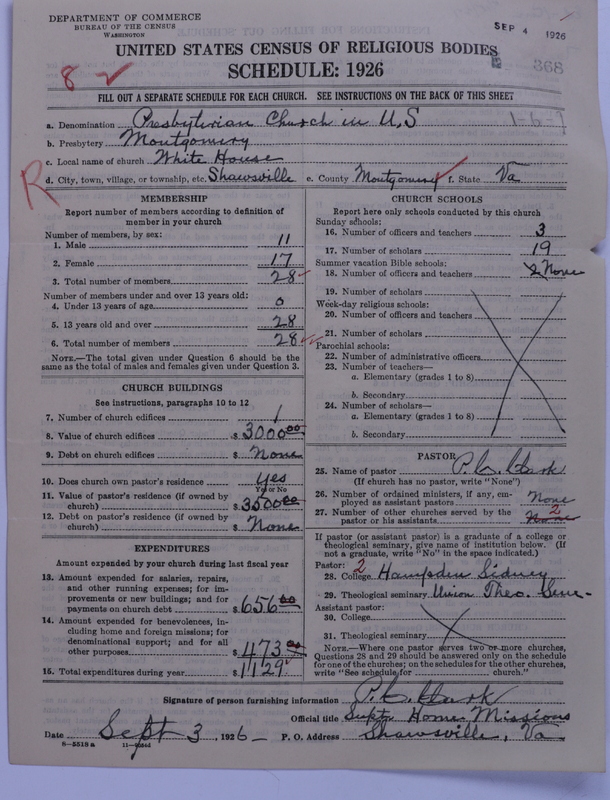 DEPARTMENT OF COMMERCE
BUREAU OF THE CENSUS
WASHINGTON
SEP 4 1926
UNITED STATES CENSUS OF RELIGIOUS BODIES
SCHEDULE: 1926
8
368
FILL OUT A SEPARATE SCHEDULE FOR EACH CHURCH. SEE INSTRUCTIONS ON THE BACK OF THIS SHEET
a. Denomination Presbyterian Church in U,S
1-6-1
b. Presbytery Montgomery
c. Local name of church White House
d. City, town, village, or township, etc. Shawsville e. County Montgomery f. State Va
R
MEMBERSHIP
Report number of members according to definition of
member in your church
Number of members, by sex:
1. Male 11
2. Female 17
3. Total number of members 28
Number of members under and over 13 years old:
4. Under 13 years of age 0
5. 13 years old and over 28
6. Total number of members 28
NOTE.—The total given under Question 6 should be the
same as the total of males and females given under Question 3.
CHURCH BUILDINGS
See instructions, paragraphs 10 to 12
7. Number of church edifices 1
8. Value of church edifices $ 3000.00
9. Debt on church edifices $ None
10. Does church own pastor's residence yes
Yes or No
11. Value of pastor's residence (if owned by
church) $ 3500.00
12. Debt on pastor's residence (if owned by
church) $ None
EXPENDITURES
Amount expended by your church during last fiscal year
13. Amount expended for salaries, repairs,
and other running expenses; for im-
provements or new buildings; and for
payments on church debt $ 656.00
14. Amount expended for benevolences, in-
cluding home and foreign missions; for
denominational support; and for all
other purposes $ 473.00
15. Total expenditures during year $ 1129
CHURCH SCHOOLS
Report here only schools conducted by this church
Sunday schools:
16. Number of officers and teachers 3
17. Number of scholars 19
Summer vacation Bible schools:
18. Number of officers and teachers None
19. Number of scholars
Week-day religious schools:
20. Number of officers and teachers
21. Number of scholars
Parochial schools:
22. Number of administrative officers
23. Number of teachers—
a. Elementary (grades 1 to 8)
b. Secondary
24. Number of scholars—
a. Elementary (grades 1 to 8)
b. Secondary
PASTOR
25. Name of pastor P. C. Clark
(If church has no pastor, write "None")
26. Number of ordained ministers, if any, em-
ployed as assistant pastors None
27. Number of other churches served by the
pastor or his assistants None 2
If pastor (or assistant pastor) is a graduate of a college or
theological seminary, give name of institution below. (If
not a graduate, write "No" in the space indicated.)
Pastor: 2
28. College Hampden Sidney
29. Theological seminary Union Theo. Sem-
Assistant pastor:
30. College
31. Theological seminary
NOTE.—Where one pastor serves two or more churches,
Questions 28 and 29 should be answered only on the schedule
for one of the churches; on the schedules for the other churches,
write "See schedule for church."
Signature of person furnishing information P. C. Clark
Official title Supt. Home Missions
Date Sept 3, 1926 P. O. Address Shawsville, Va